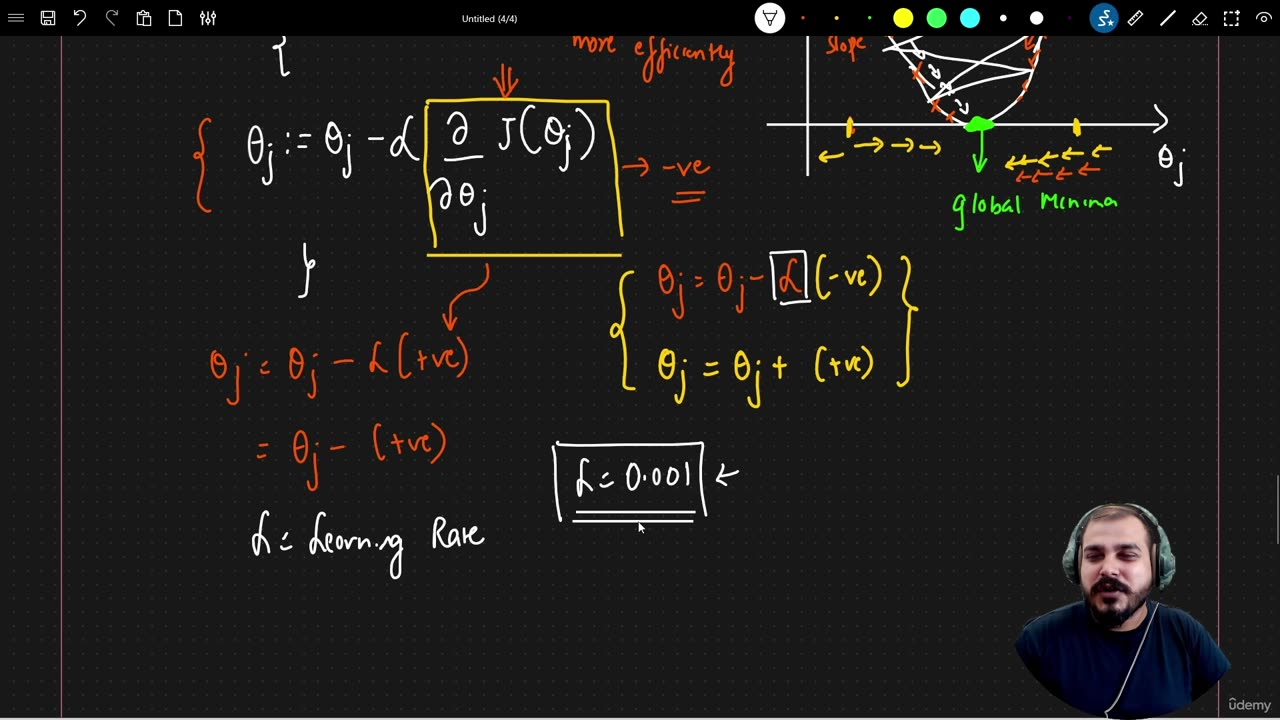 Untitled (4/4)
more efficiently
slope
{
θj := θj - α ∂/∂θj J(θj)
→ -ve
}
θj
global Minima
θj = θj - α (-ve)
θj = θj + (+ve)
θj = θj - α (+ve)
= θj - (+ve)
α = 0.001 ←
α = Learning Rate
ûdemy